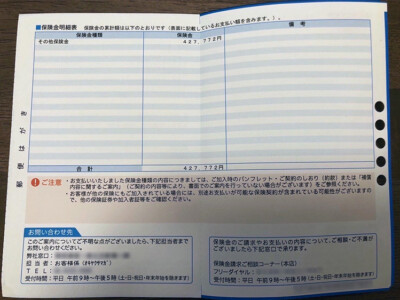 ■保険金明細表 保険金の累計額は以下のとおりです（裏面に記載しているお支払い額を含みます。）。
保険金種類 保険金 備考
その他保険金 427,772円
合計 427,772円
郵便はがき
ご注意
・お支払いいたしました保険金種類の内容につきましては、ご加入時のパンフレット・ご契約のしおり（約款）または「補償
内容に関するご案内」（ご契約の内容等により、書面でのご案内を行っていない場合がございます）をご参照ください。
・お客様が他の保険にもご加入されている場合には、別途お支払いが可能な保険契約が含まれている可能性がございますの
で、他の保険証券や加入者証等をご確認ください。
お問い合わせ先
このご案内についてご不明な点がございましたら、下記担当者まで
お問い合わせください。
弊社窓口：
担当者：お客様係
TEL：
受付時間：平日 午前9時～午後5時（土・日・祝日・年末年始を除きます）
保険金のご請求やお支払いの内容について、ご相談・ご不満が
ございましたら下記窓口で承ります。
保険金請求ご相談コーナー（本店）
フリーダイヤル：
受付時間：平日 午前9時～午後5時（土・日・祝日・年末年始を除きます）